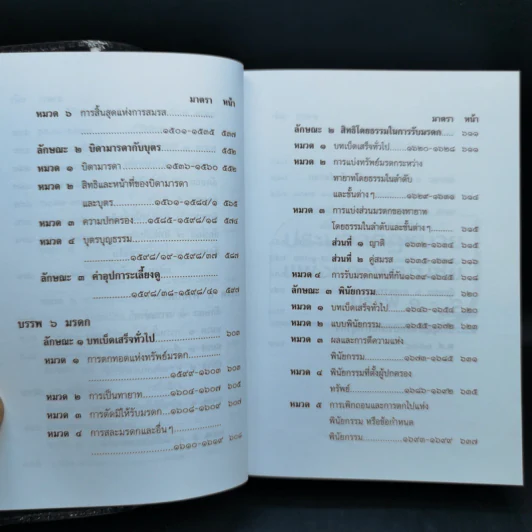 มาตรา หน้า
หมวด ๖ การสิ้นสุดแห่งการสมรส
๑๕๐๑-๑๕๓๕ ๕๓๗
ลักษณะ ๒ บิดามารดากับบุตร ๕๕๒
หมวด ๑ บิดามารดา ๑๕๓๖-๑๕๖๐ ๕๕๒
หมวด ๒ สิทธิและหน้าที่ของบิดามารดา
และบุตร ๑๕๖๑-๑๕๘๔/๑
หมวด ๓ ความปกครอง ๑๕๘๕-๑๕๙๘/๑๘ ๕๗๔
หมวด ๔ บุตรบุญธรรม
๑๕๙๘/๑๙-๑๕๙๘/๓๗ ๕๘๗
ลักษณะ ๓ ค่าอุปการะเลี้ยงดู
๑๕๙๘/๓๘-๑๕๙๘/๔๑ ๕๙๗
บรรพ ๖ มรดก
ลักษณะ ๑ บทเบ็ดเสร็จทั่วไป
หมวด ๑ การตกทอดแห่งทรัพย์มรดก
๑๕๙๙-๑๖๐๓
หมวด ๒ การเป็นทายาท ๑๖๐๔-๑๖๐๗
หมวด ๓ การตัดมิให้รับมรดก ๑๖๐๘-๑๖๐๙
หมวด ๔ การสละมรดกและอื่น ๆ
๑๖๑๐-๑๖๑๙
มาตรา หน้า
ลักษณะ ๒ สิทธิโดยธรรมในการรับมรดก ๖๑๑
หมวด ๑ บทเบ็ดเสร็จทั่วไป ๑๖๒๐-๑๖๒๘ ๖๑๑
หมวด ๒ การแบ่งทรัพย์มรดกระหว่าง
ทายาทโดยธรรมในลำดับ
และชั้นต่าง ๆ ๑๖๒๙-๑๖๓๑
หมวด ๓ การแบ่งส่วนมรดกของทายาท
โดยธรรมในลำดับและชั้นต่าง ๆ ๖๑๕
ส่วนที่ ๑ ญาติ ๑๖๓๒-๑๖๓๔ ๖๑๕
ส่วนที่ ๒ คู่สมรส ๑๖๓๕-๑๖๓๘
หมวด ๔ การรับมรดกแทนที่กัน ๑๖๓๙-๑๖๔๕ ๖๑๘
ลักษณะ ๓ พินัยกรรม ๖๒๐
หมวด ๑ บทเบ็ดเสร็จทั่วไป ๑๖๔๖-๑๖๕๔
หมวด ๒ แบบพินัยกรรม ๑๖๕๕-๑๖๗๒
หมวด ๓ ผลและการตีความแห่ง
พินัยกรรม ๑๖๗๓-๑๖๘๕ ๖๓๑
หมวด ๔ พินัยกรรมที่ตั้งผู้ปกครอง
ทรัพย์ ๑๖๘๖-๑๖๙๒ ๖๓๕
หมวด ๕ การเพิกถอนและการตกไปแห่ง
พินัยกรรม หรือข้อกำหนด
พินัยกรรม ๑๖๙๓-๑๖๙๙ ๖๓๗